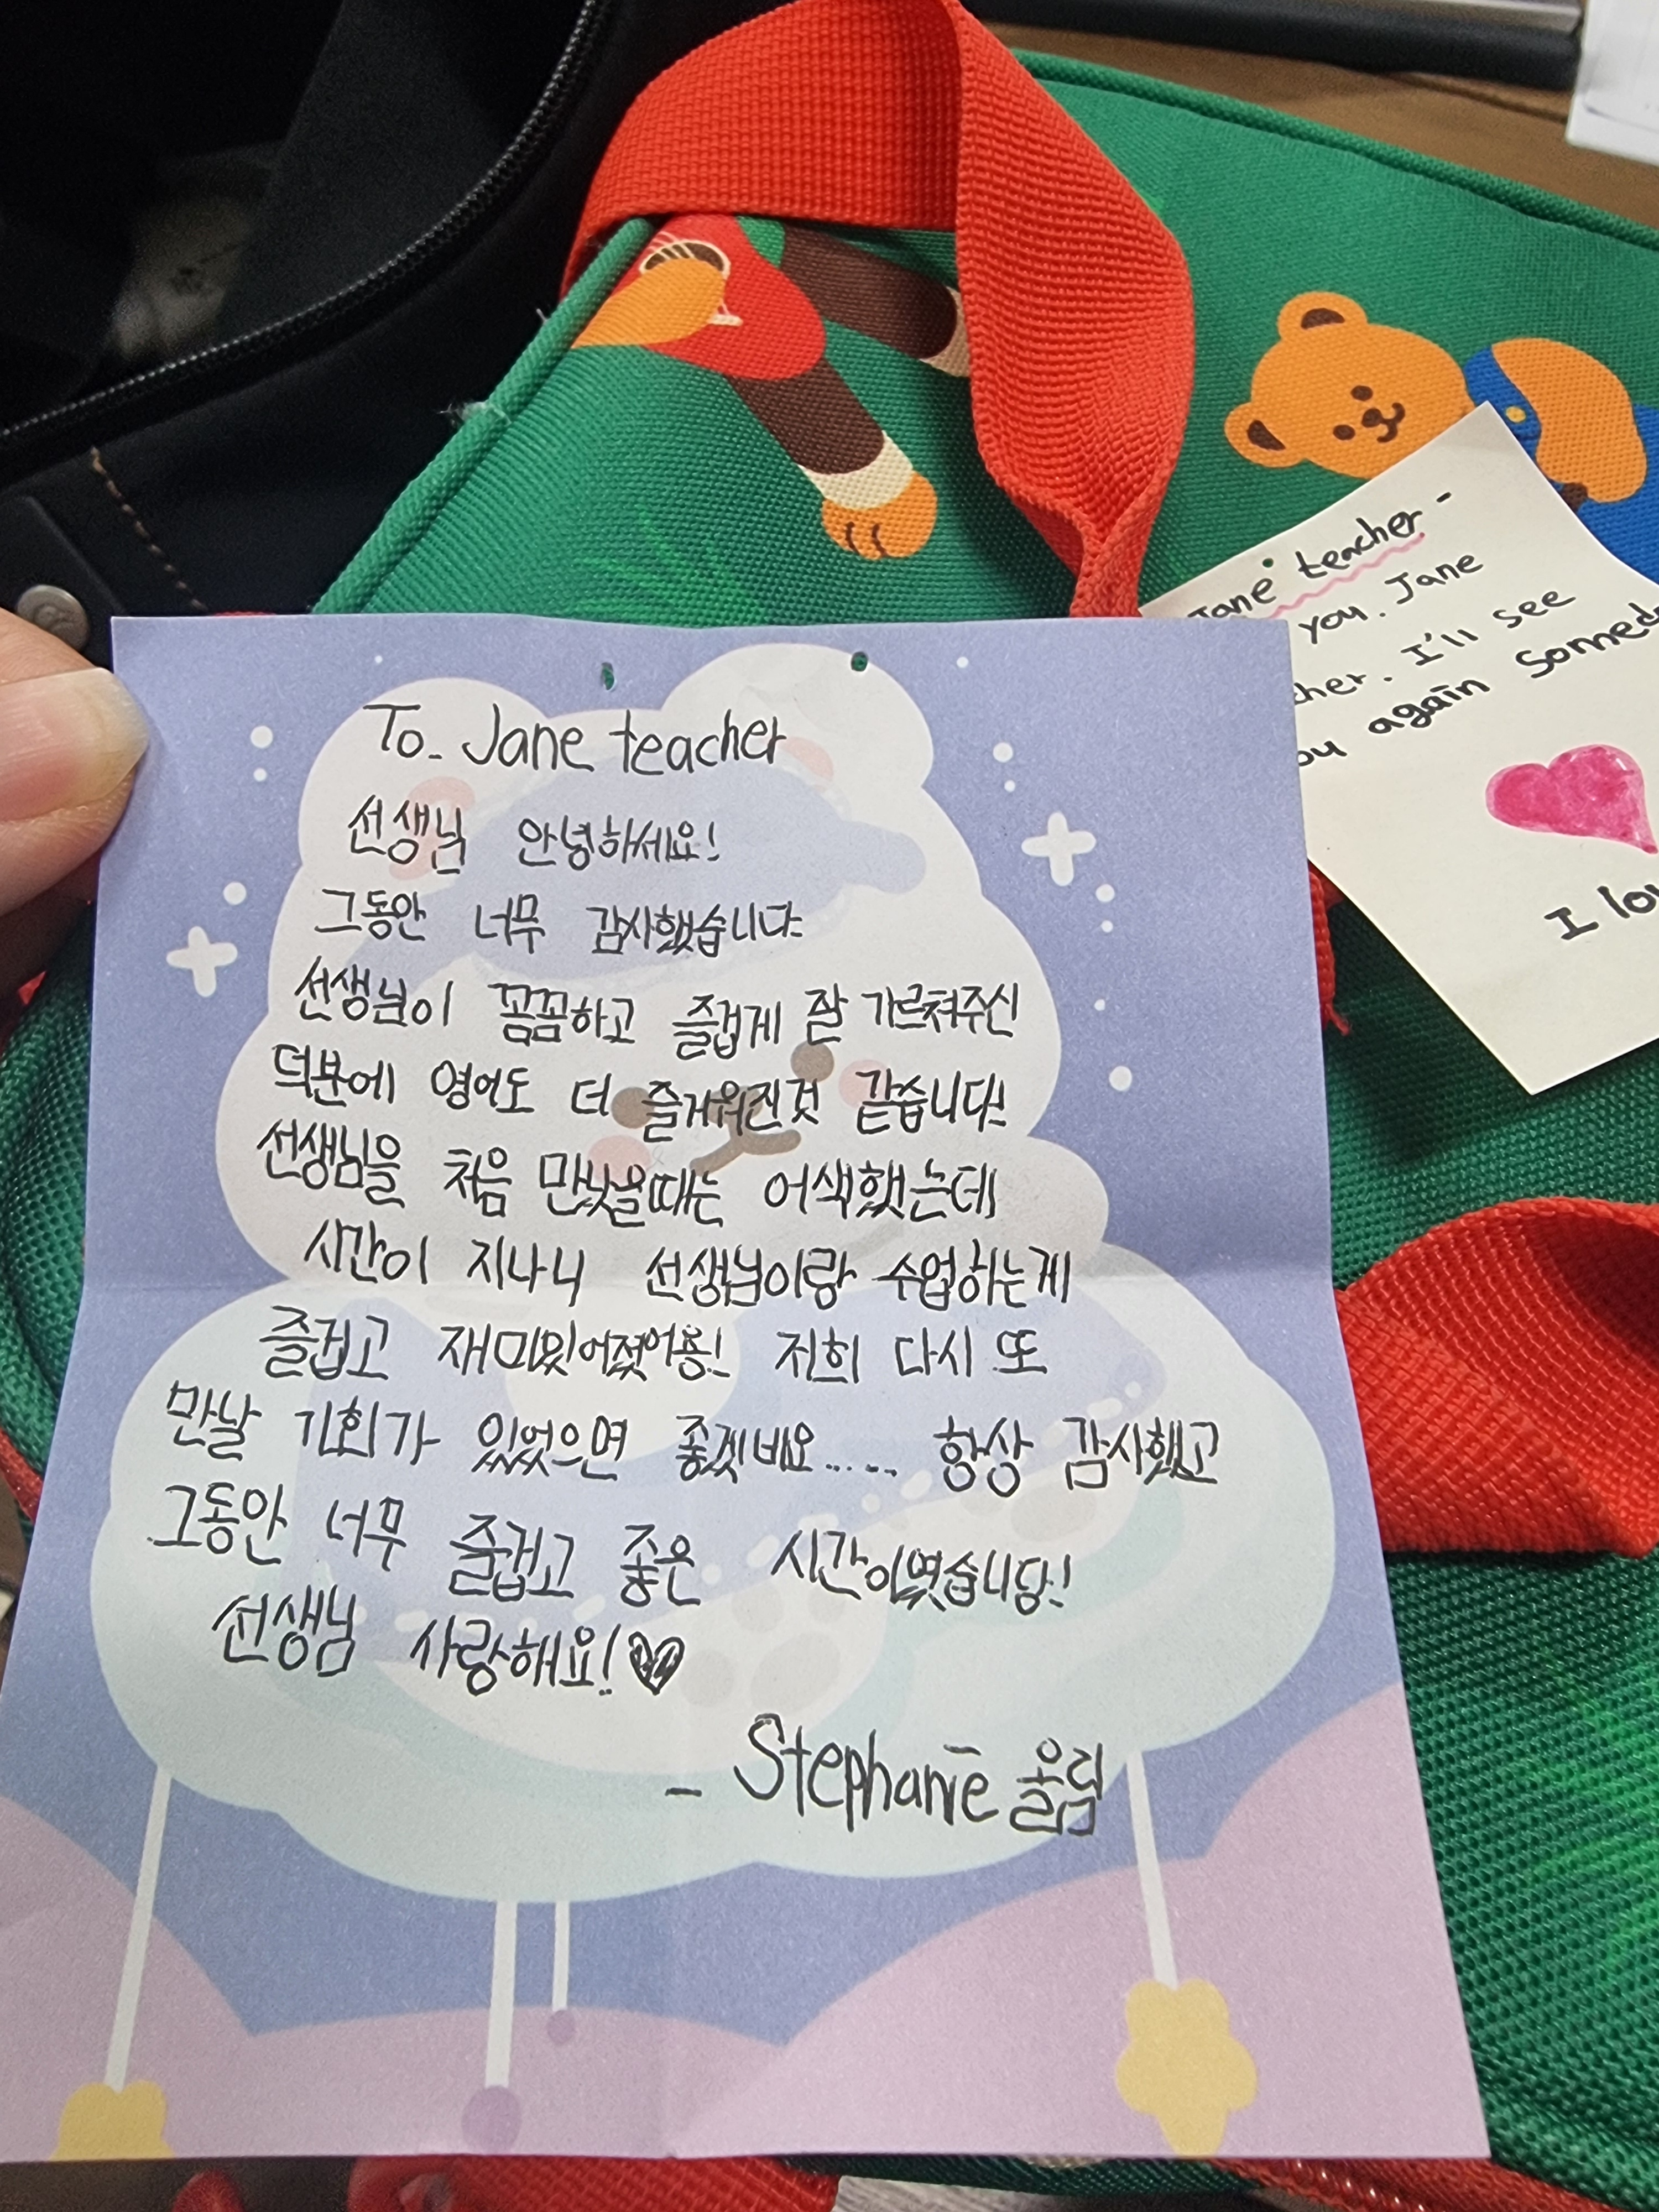 To. Jane teacher
선생님 안녕하세요!
그동안 너무 감사했습니다
선생님이 꼼꼼하고 즐겁게 잘 가르쳐주신
덕분에 영어도 더 즐거워진것 같습니다!
선생님을 처음 만났을때는 어색했는데
시간이 지나니 선생님이랑 수업하는게
즐겁고 재미있어졌어용! 저희 다시 또
만날 기회가 있었으면 좋겠네요..... 항상 감사했고
그동안 너무 즐겁고 좋은 시간이였습니당!
선생님 사랑해요!♥
- Stephanie 올림
Jane teacher -
you. Jane
I'll see
again
I